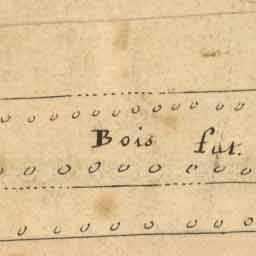 Bois fut.